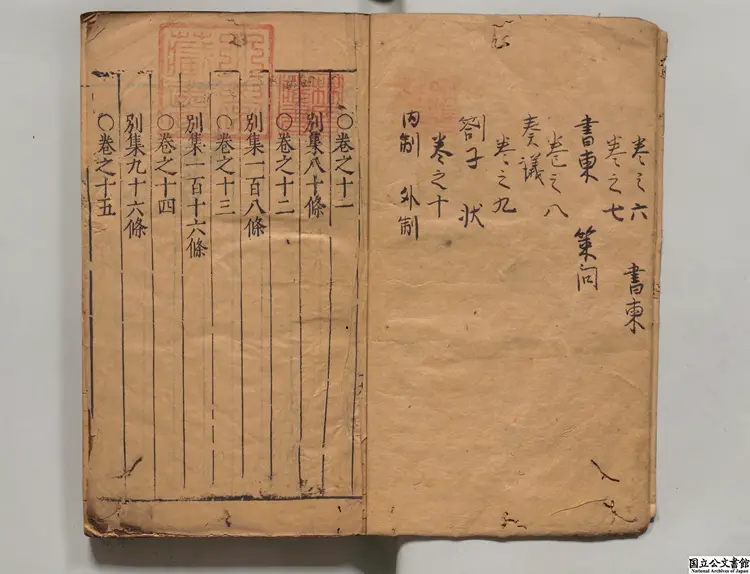 卷之六 書柬
卷之七
書柬 策问
卷之八
奏議
卷之九
劄子 状
卷之十
内制 外制
○卷之十一
別集八十條
○卷之十二
別集一百八條
○卷之十三
別集一百十六條
○卷之十四
別集九十六條
○卷之十五
国立公文書館
National Archives of Japan